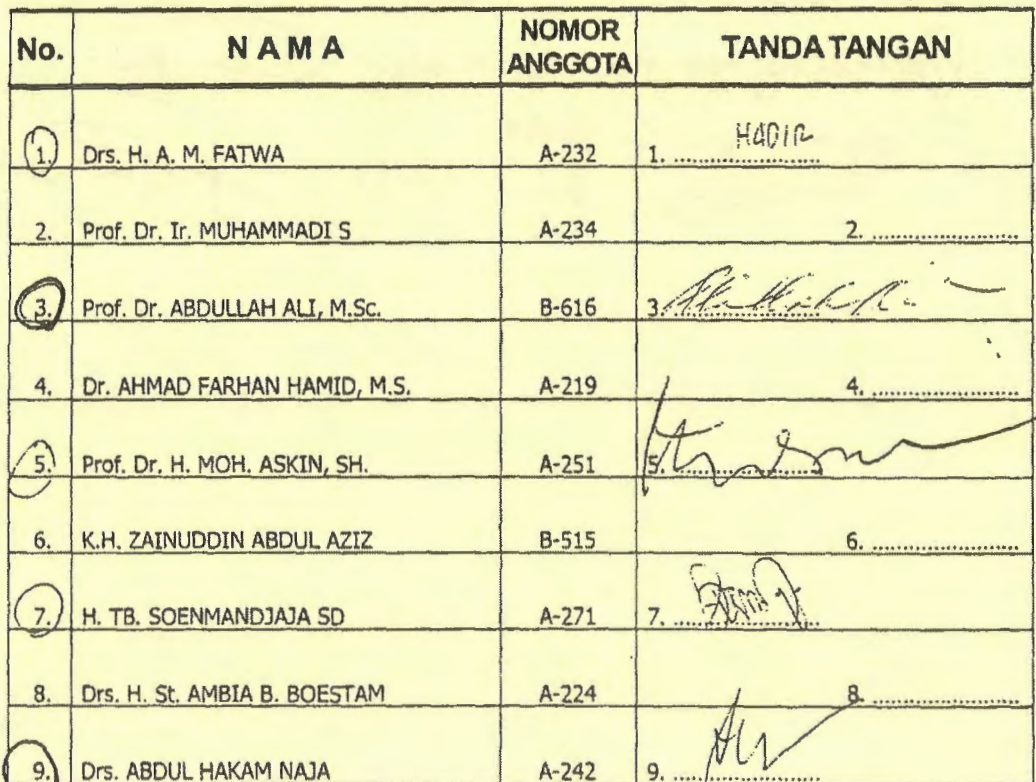 No. NAMA NOMOR ANGGOTA TANDA TANGAN
1. Drs. H. A. M. FATWA A-232 1. HADIR
2. Prof. Dr. Ir. MUHAMMADI S A-234 2. ......................
3. Prof. Dr. ABDULLAH ALI, M.Sc. B-616 3. ......................
4. Dr. AHMAD FARHAN HAMID, M.S. A-219 4. ......................
5. Prof. Dr. H. MOH. ASKIN, SH. A-251 5. ......................
6. K.H. ZAINUDDIN ABDUL AZIZ B-515 6. ......................
7. H. TB. SOENMANDJAJA SD A-271 7. ......................
8. Drs. H. St. AMBIA B. BOESTAM A-224 8. ......................
9. Drs. ABDUL HAKAM NAJA A-242 9. ......................